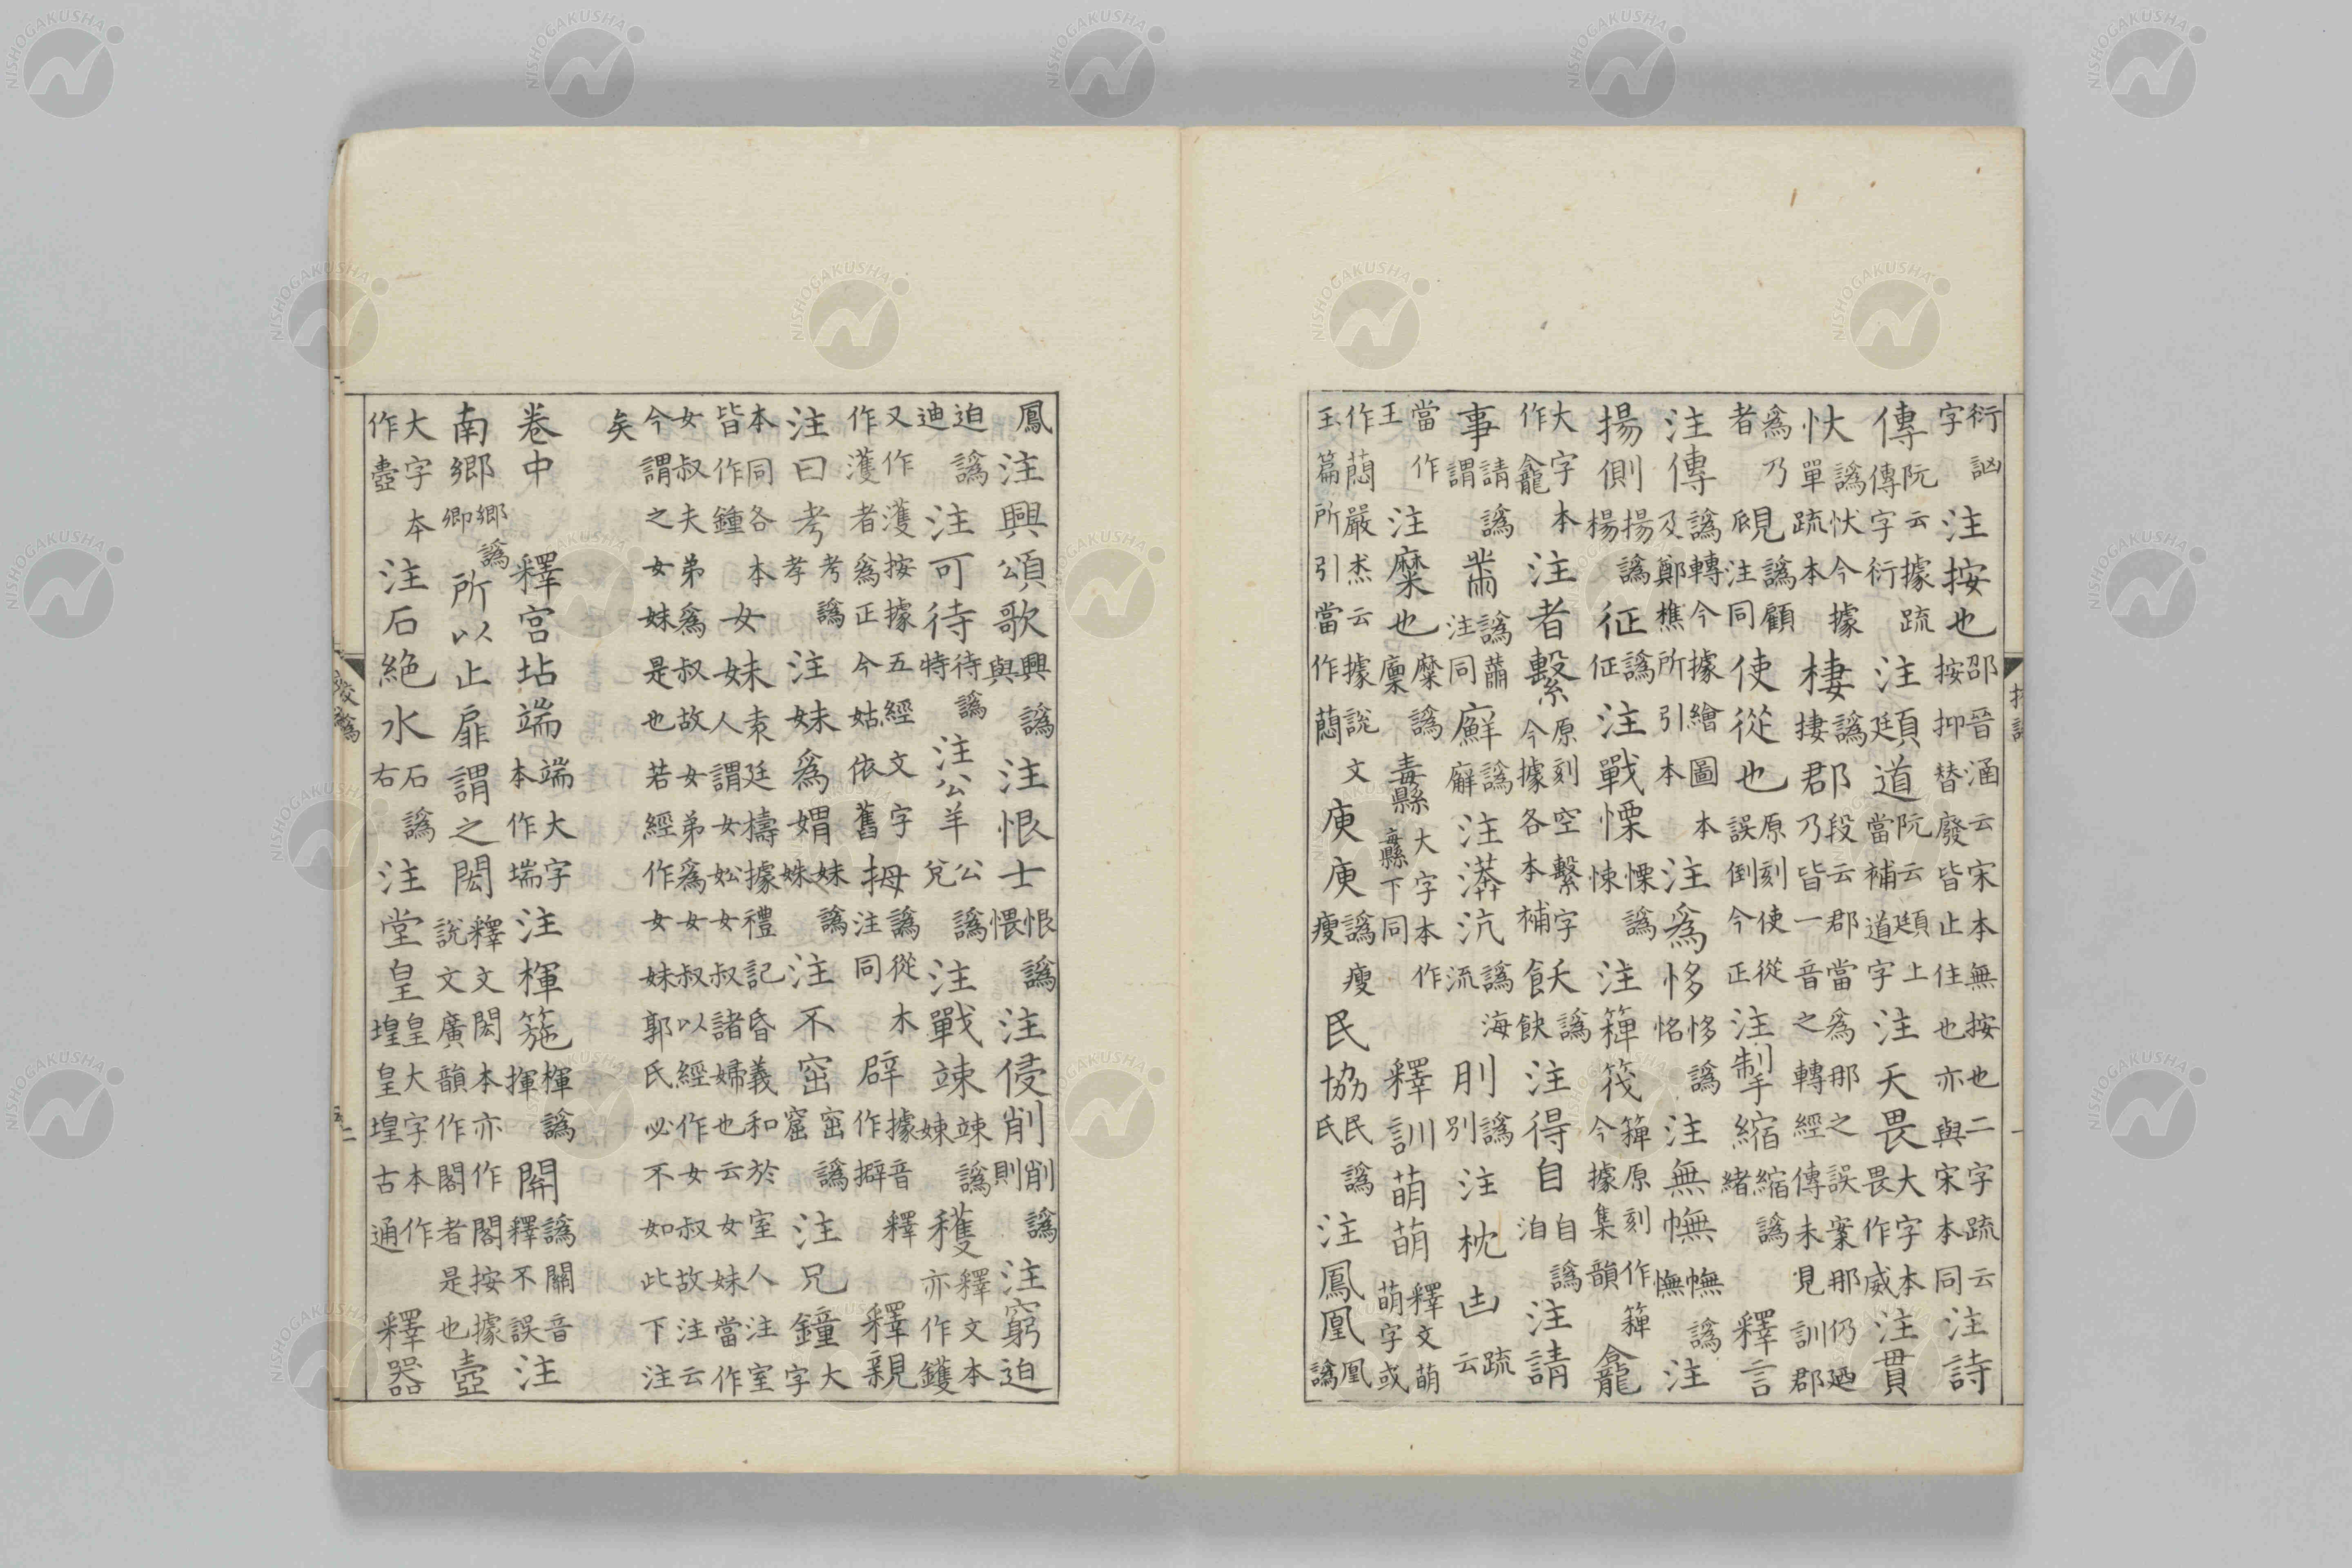 衍字訩 注按也 邵晉涵云宋本無按也二字疏云按抑替廢皆止住也亦與宋本同 注詩
傳 阮云據疏傳字衍 注頲道 阮云頲上當補道字 注天畏 大字本畏作威 注貫
忕 譌忕今據單疏本 棲 譌捿 郡乃 段云郡當爲那之誤案那仍廼皆一音之轉經傳未見訓郡
爲乃者 覛 譌顧注同 使從也 原刻使從誤倒今正 注掣縮 縮譌緒 釋言
注傳 譌轉今據繪圖本及鄭樵所引本 注爲恀 恀譌恡 注無幠 幠譌憮 注
揚側 揚譌楊 征 譌佂 注戰慄 慄譌悚 注箄筏 箄原刻作簰今據集韻 龕
大字本作龕 注者繫 原刻空繫字今據各本補 飫 譌飲 注得自 自譌洎 注請
事 請譌謂 黹 譌黼注同 廯 譌廨 注漭沆 譌海流 刖 譌別 注枕凷 疏云
當作王 注糜也 糜譌糜 毒縣 大字本作毒縣下同 釋訓 萌萌 釋文萌萌字或
作藺嚴悉云據說文玉篇所引當作藺 庾庾 譌瘦瘦 民協 民譌氏 注鳳凰 凰譌
鳳 注興頌歌 興譌與 注恨士 恨譌畏 注侵削 削譌則 注窮迫
迫譌迪 注可待 待譌特 注公羊 公譌兌 注戰竦 竦譌悚 穫 釋文本亦作鑊
又作濩按據五經文字作濩者爲正今姑依舊 拇 譌從木注同 辟 據音釋作擗 釋親
注曰考 考譌孝 注妹爲媦 妹譌姝 注不窋 窋譌窟 注兄鐘 大字
本同各本皆作鍾 女妹 袁廷檮據禮記昏義和於室人注室人謂女妐女叔諸婦也云女妹當作
女叔夫弟爲叔故女弟爲女叔以經作女叔故注云今謂之女妹是也若經作女妹郭氏必不如此下注
矣
卷中 釋宮 坫端 端大字本作塼 注楎箷 楎譌揮 閞 譌關音釋不誤 注
南鄉 鄉譌卿 所以止扉謂之閎 釋文閎本亦作閣按說文廣韻作閣者是也據 壼
大字本作壺 注石絶水 石譌右 注堂皇 皇大字本作堭皇堭古通 釋器
校譌
二